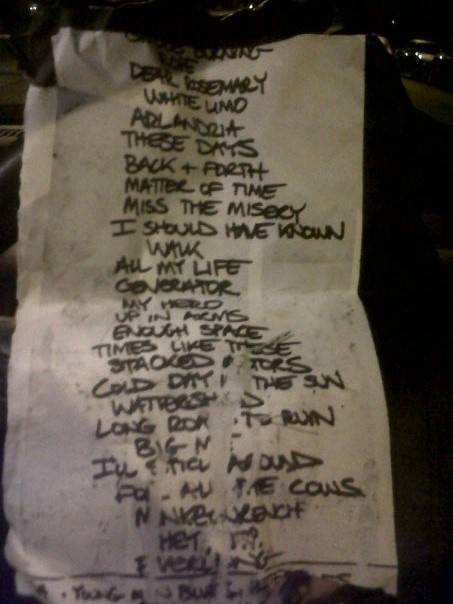 BURNING
ROPE
DEAR ROSEMARY
WHITE LIMO
ARLANDRIA
THESE DAYS
BACK + FORTH
MATTER OF TIME
MISS THE MISERY
I SHOULD HAVE KNOWN
WALK
ALL MY LIFE
GENERATOR
MY HERO
UP IN ARMS
ENOUGH SPACE
TIMES LIKE THESE
STACKED TORS
COLD DAY THE SUN
WATTERSH D
LONG ROA TO RUIN
BIG M
I'LL STICK A OUND
FO ALL THE COWS
M NKEY WRENCH
HEY
EVERL NG
YOUNG M BLUE